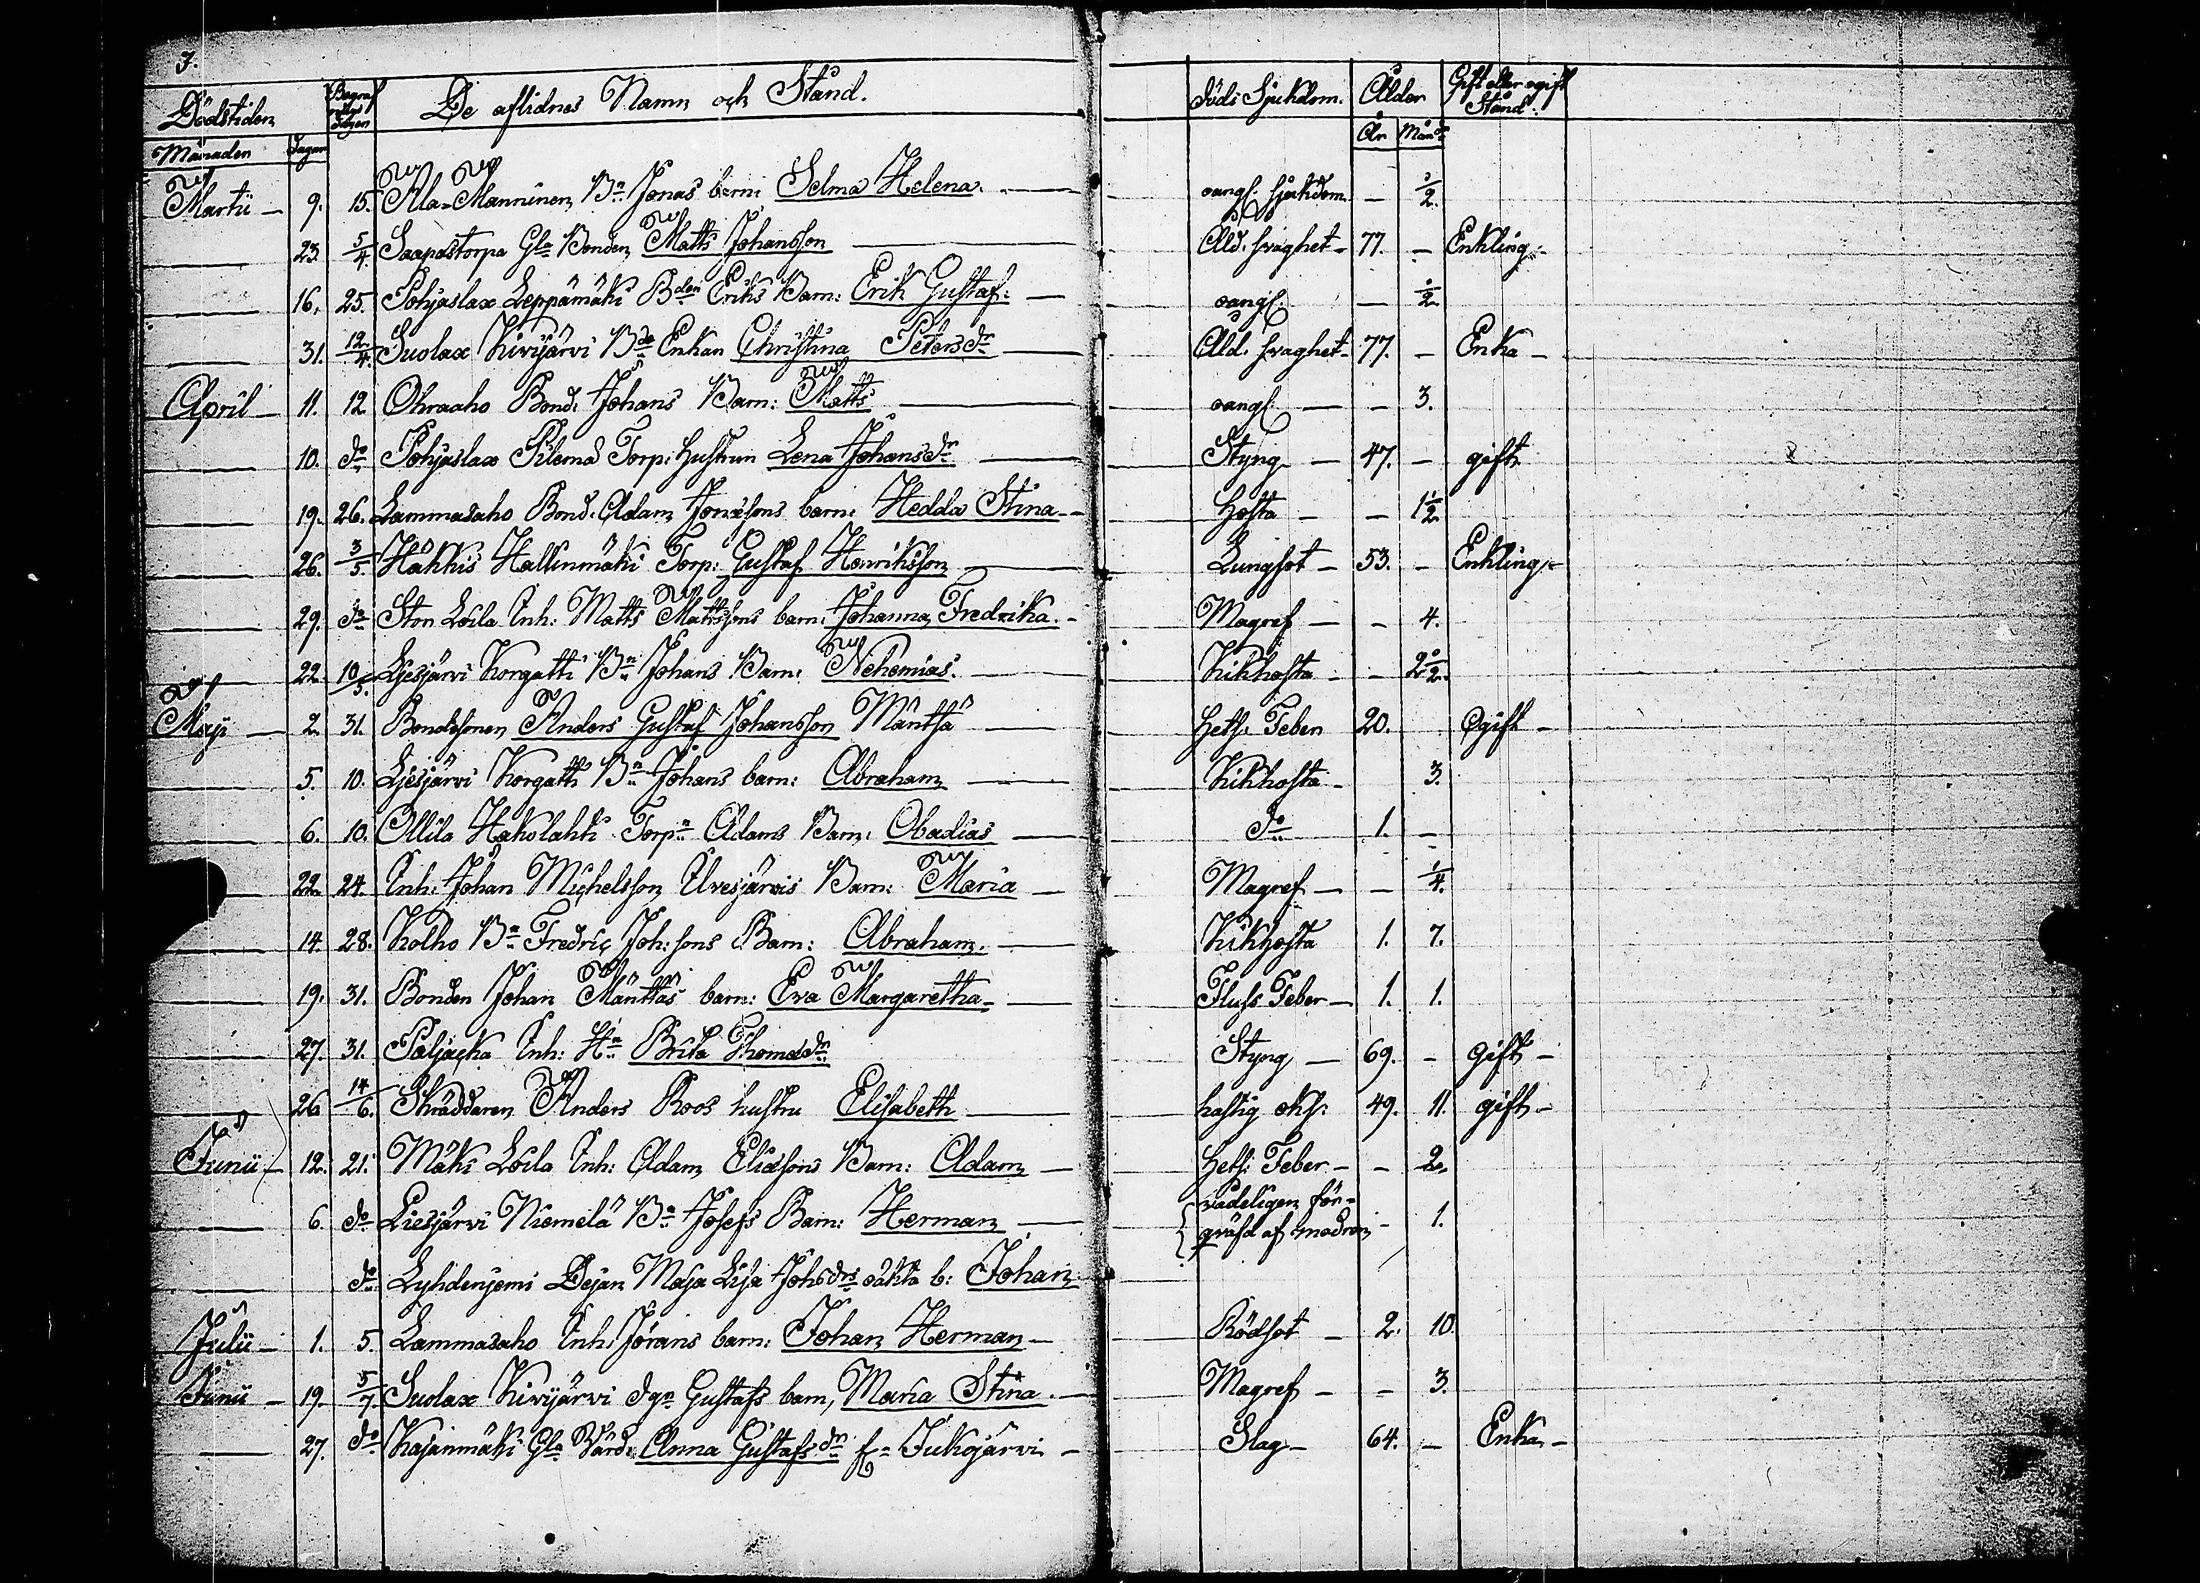 3.
Dödstiden Begrafnings Dagen De aflidnes Namn och Stånd. Döds Sjukdom. Ålder Gift eller ogift Stånd.
Månaden Dagen År Mån:r
Martii 9. 15. Ala-Manninen Bn Jonas barn: Selma Helena. oangf. sjukdom — 1/2.
23. 5/4. Saapastorpa Gla Bonden Matts Johansson Åld. svaghet 77. — Enkling
16. 25. Pohjaslax Leppämäki Bden Eriks Barn: Erik Gustaf: oangf. — 1/2.
31. 12/4. Suolax Kivijärvi Bde Enkan Christina Petersdr Åld. svaghet 77. — Enka
April 11. 12 Ohraaho Bond. Johans Barn: Matts oangf. — 3.
10. do Pohjaslax Pilema Torp. hustrun Lena Johansdr Styng 47. — gift
19. 26. Lammasaho Bond. Adam Jonæsons barn: Hedda Stina Hosta — 1 1/2
26. 3/5 Häkkis Hallinmäki Torp: Gustaf Henriksson Lungsot 53. — Enkling
29. do Ston Loila Inh: Matts Mattssons barn: Johanna Fredrika. Magref — 4.
22. 10/5. Ljesjärvi Korgatti Bn Johans Barn: Nehemias. Kikhosta — 2 1/2.
Maji 2. 31. Bondesonen Anders Gustaf Johansson Mänttä Hets. Feber 20. Ogift
5. 10. Ljesjärvi Korgatti Bn Johans barn: Abraham Kikhosta 3.
6. 10. Ollila Hakolahti Torpn Adams Barn: Obadias do 1. —
22. 24. Inh: Johan Michelsson Ulvesjärvis Barn: Maria Magref — 1/4.
14. 28. Kolho Bn Fredric Joh:sons Barn: Abraham. Kikhosta 1. 7.
19. 31. Bonden Johan Mänttäs barn: Eva Margaretha Fluss Feber 1. 1.
27. 31. Paljacka Inh: Hu Brita Thomasdr Styng 69. — Gift
26 14/6. Skräddaren Anders Roos hustru Elisabeth hastig 49. 11. gift
Junii 12. 21. Mäki Loila Inh: Adam Eliæsons Barn: Adam Hets: Feber — 2.
6. do Liesjärvi Niemelä Bn Josefs Barn: Herman vådeligen förqväfd af modren — 1.
do Lyhdenjemi Dejan Maja Lisa Johsdrs oäkta b: Johan
Julii 1. 5. Lammasaho Inh: Jörans barn: Johan Herman Rödsot 2. 10
Junii 19. 5/7. Suolax Kivijärvi dgn Gustafs barn, Maria Stina. Magref — 3.
27. do Kajanmäki Gla Värd: Anna Gustafsdr fr Jukojärvi Slag 64. — Enka